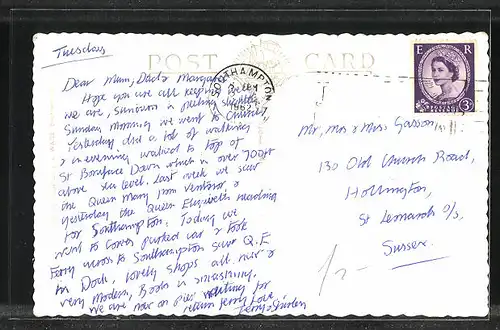 Tuesday
POST CARD
SOUTHAMPTON
1962
E R
POSTAGE
3D
Dear Mum, Dad & Margaret
Hope you are all keeping
we are,
Sunday Morning we went to Church,
Yesterday did a lot of walking
& in evening walked to top of
St Boniface Down which is over 700ft
above sea level. Last week we saw
the Queen Mary from Ventnor &
yesterday the Queen Elizabeth heading
for Southampton. Today we
went to Cowes parked car & took
Ferry across to Southampton saw Q.E
in Dock, lovely shops all new &
very modern,
We are now on pier waiting for
return ferry Love
Terry & Shirley
Mr, Mrs & Miss Gasson,
130 Old Church Road,
Hollington,
St Leonards o/s,
Sussex.
1/-